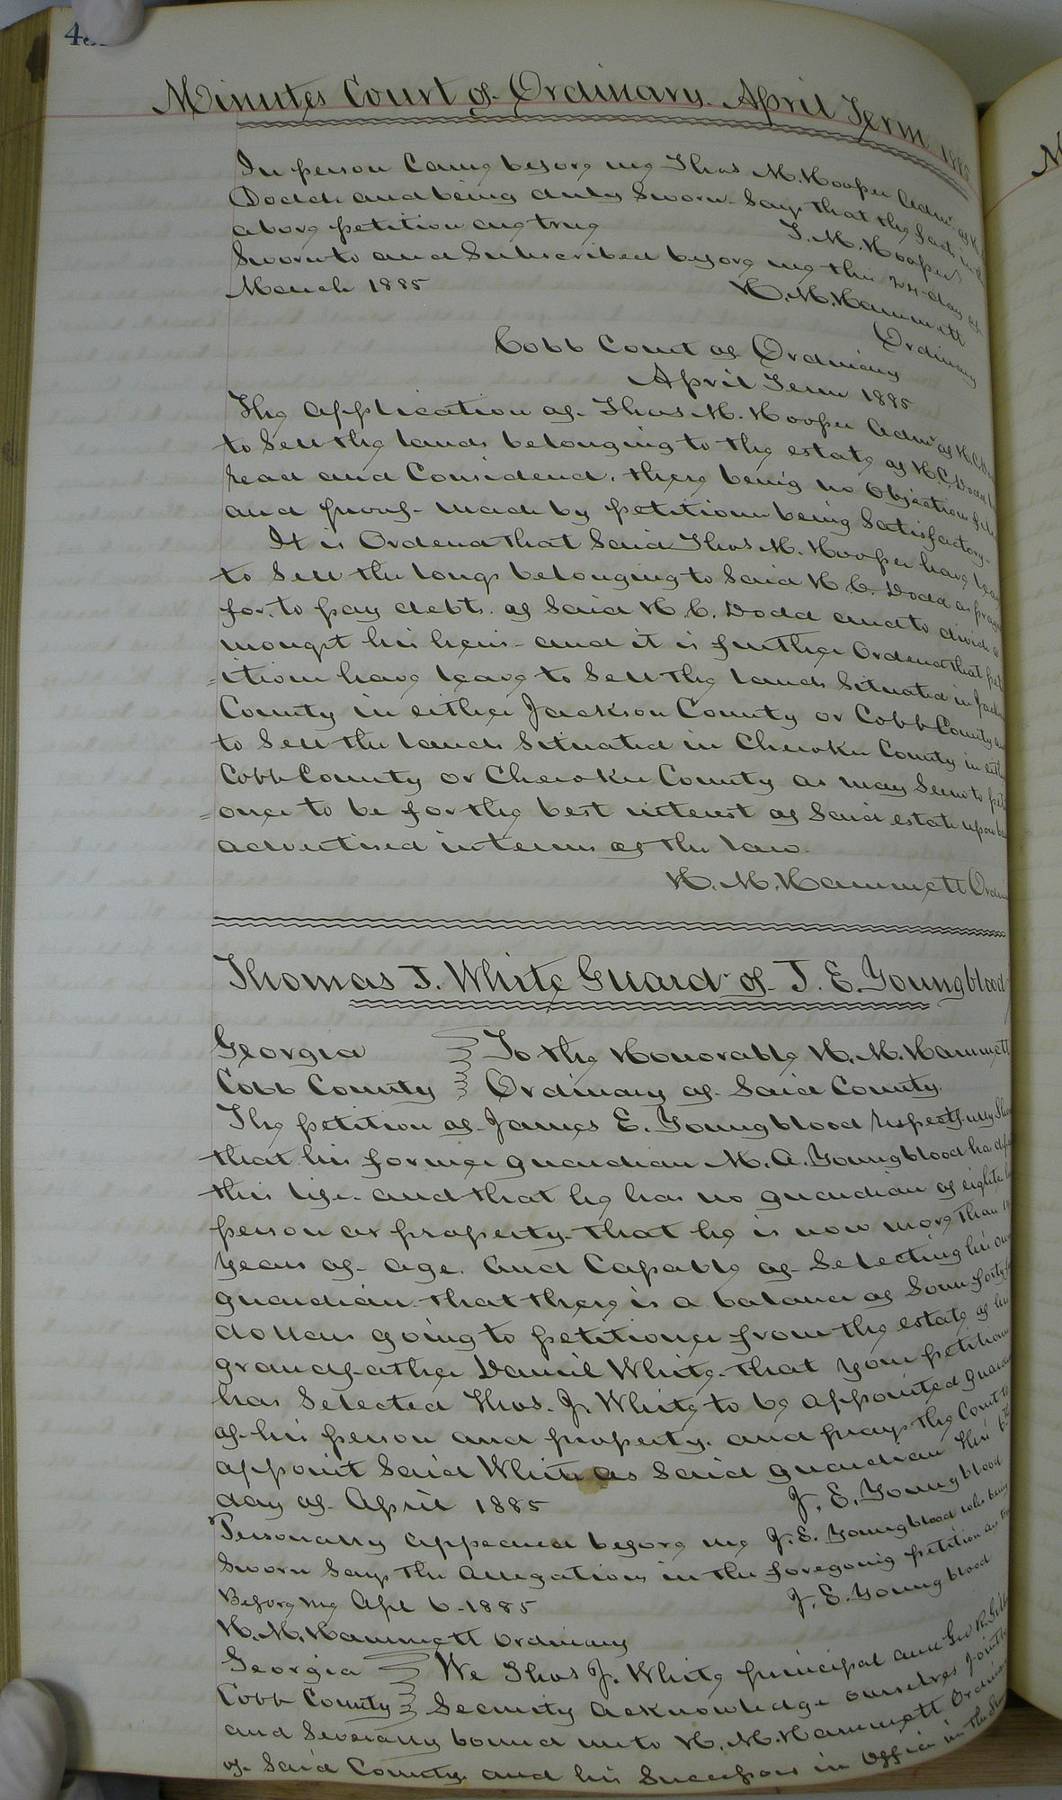 Minutes Court of Ordinary. April Term 1885
In person Came before me Thos M. Hooper Adm'r of
Dodd and being duly Sworn Says that the facts in
above petition are true T. M. Hooper
Sworn to and Subscribed before me this 24 day of
March 1885 H. M. Hammett
Ordinary
Cobb Court of Ordinary
April Term 1885
The application of Thos M. Hooper Adm'r of H. C.
to Sell the lands belonging to the estate of H. C. Dodd
read and Considered, there being no Objections
and proof made by petitioner being Satisfactory.
It is Ordered that Said Thos M. Hooper have leave
to Sell the lands belonging to Said H. C. Dodd as prayed
for to pay debts of Said H. C. Dodd and to divide a
mongst his heirs and it is further Ordered that pet
=itioner have leave to Sell the lands Situated in Jackson
County in either Jackson County or Cobb County and
to Sell the lands Situated in Cherokee County in either
Cobb County or Cherokee County as may Seem to petiti
=oner to be for the best interest of Said estate upon being
advertised in terms of the law.
H. M. Hammett Ordin
Thomas J. White Guard' of J. E. Youngblood
Georgia To the Honorable H. M. Hammett
Cobb County Ordinary of Said County.
The petition of James E. Youngblood respectfully Shows
that his former guardian M. A. Youngblood has departed
this life and that he has no guardian of either his
person or property that he is now more than
years of age and Capable of Selecting his own
guardian that there is a balance of Some forty
dollars going to petitioner from the estate of his
grandfather Daniel White that your petitioner
has Selected Thos. J. White to be appointed guardian
of his person and property. and prays the Court to
appoint Said White as Said guardian this 6th
day of April 1885 J. E. Youngblood
Personally appeared before me J. E. Youngblood who being
Sworn Says the allegations in the foregoing petition are true
Before me Apl 6 1885 J. E. Youngblood
H. M. Hammett Ordinary
Georgia We Thos J. White principal and Geo R.
Cobb County Security acknowledge ourselves jointly
and Severally bound unto H. M. Hammett Ordinary
of Said County. and his Successors in Office in the Sum